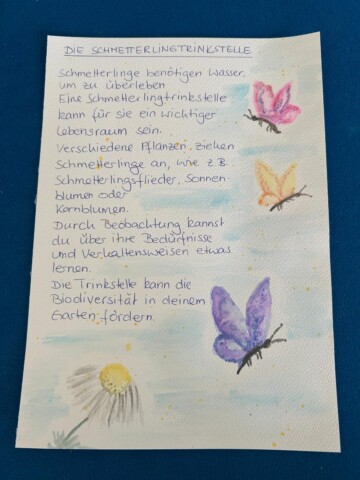 DIE SCHMETTERLINGTRINKSTELLE
Schmetterlinge benötigen Wasser,
um zu überleben
Eine Schmetterlingtrinkstelle
kann für sie ein wichtiger
Lebensraum sein.
Verschiedene Pflanzen ziehen
Schmetterlinge an, wie z.B.
Schmetterlingsflieder, Sonnen-
blumen oder
Kornblumen.
Durch Beobachtung kannst
du über ihre Bedürfnisse
und Verhaltensweisen etwas
lernen.
Die Trinkstelle kann die
Biodiversität in deinem
Garten fördern.